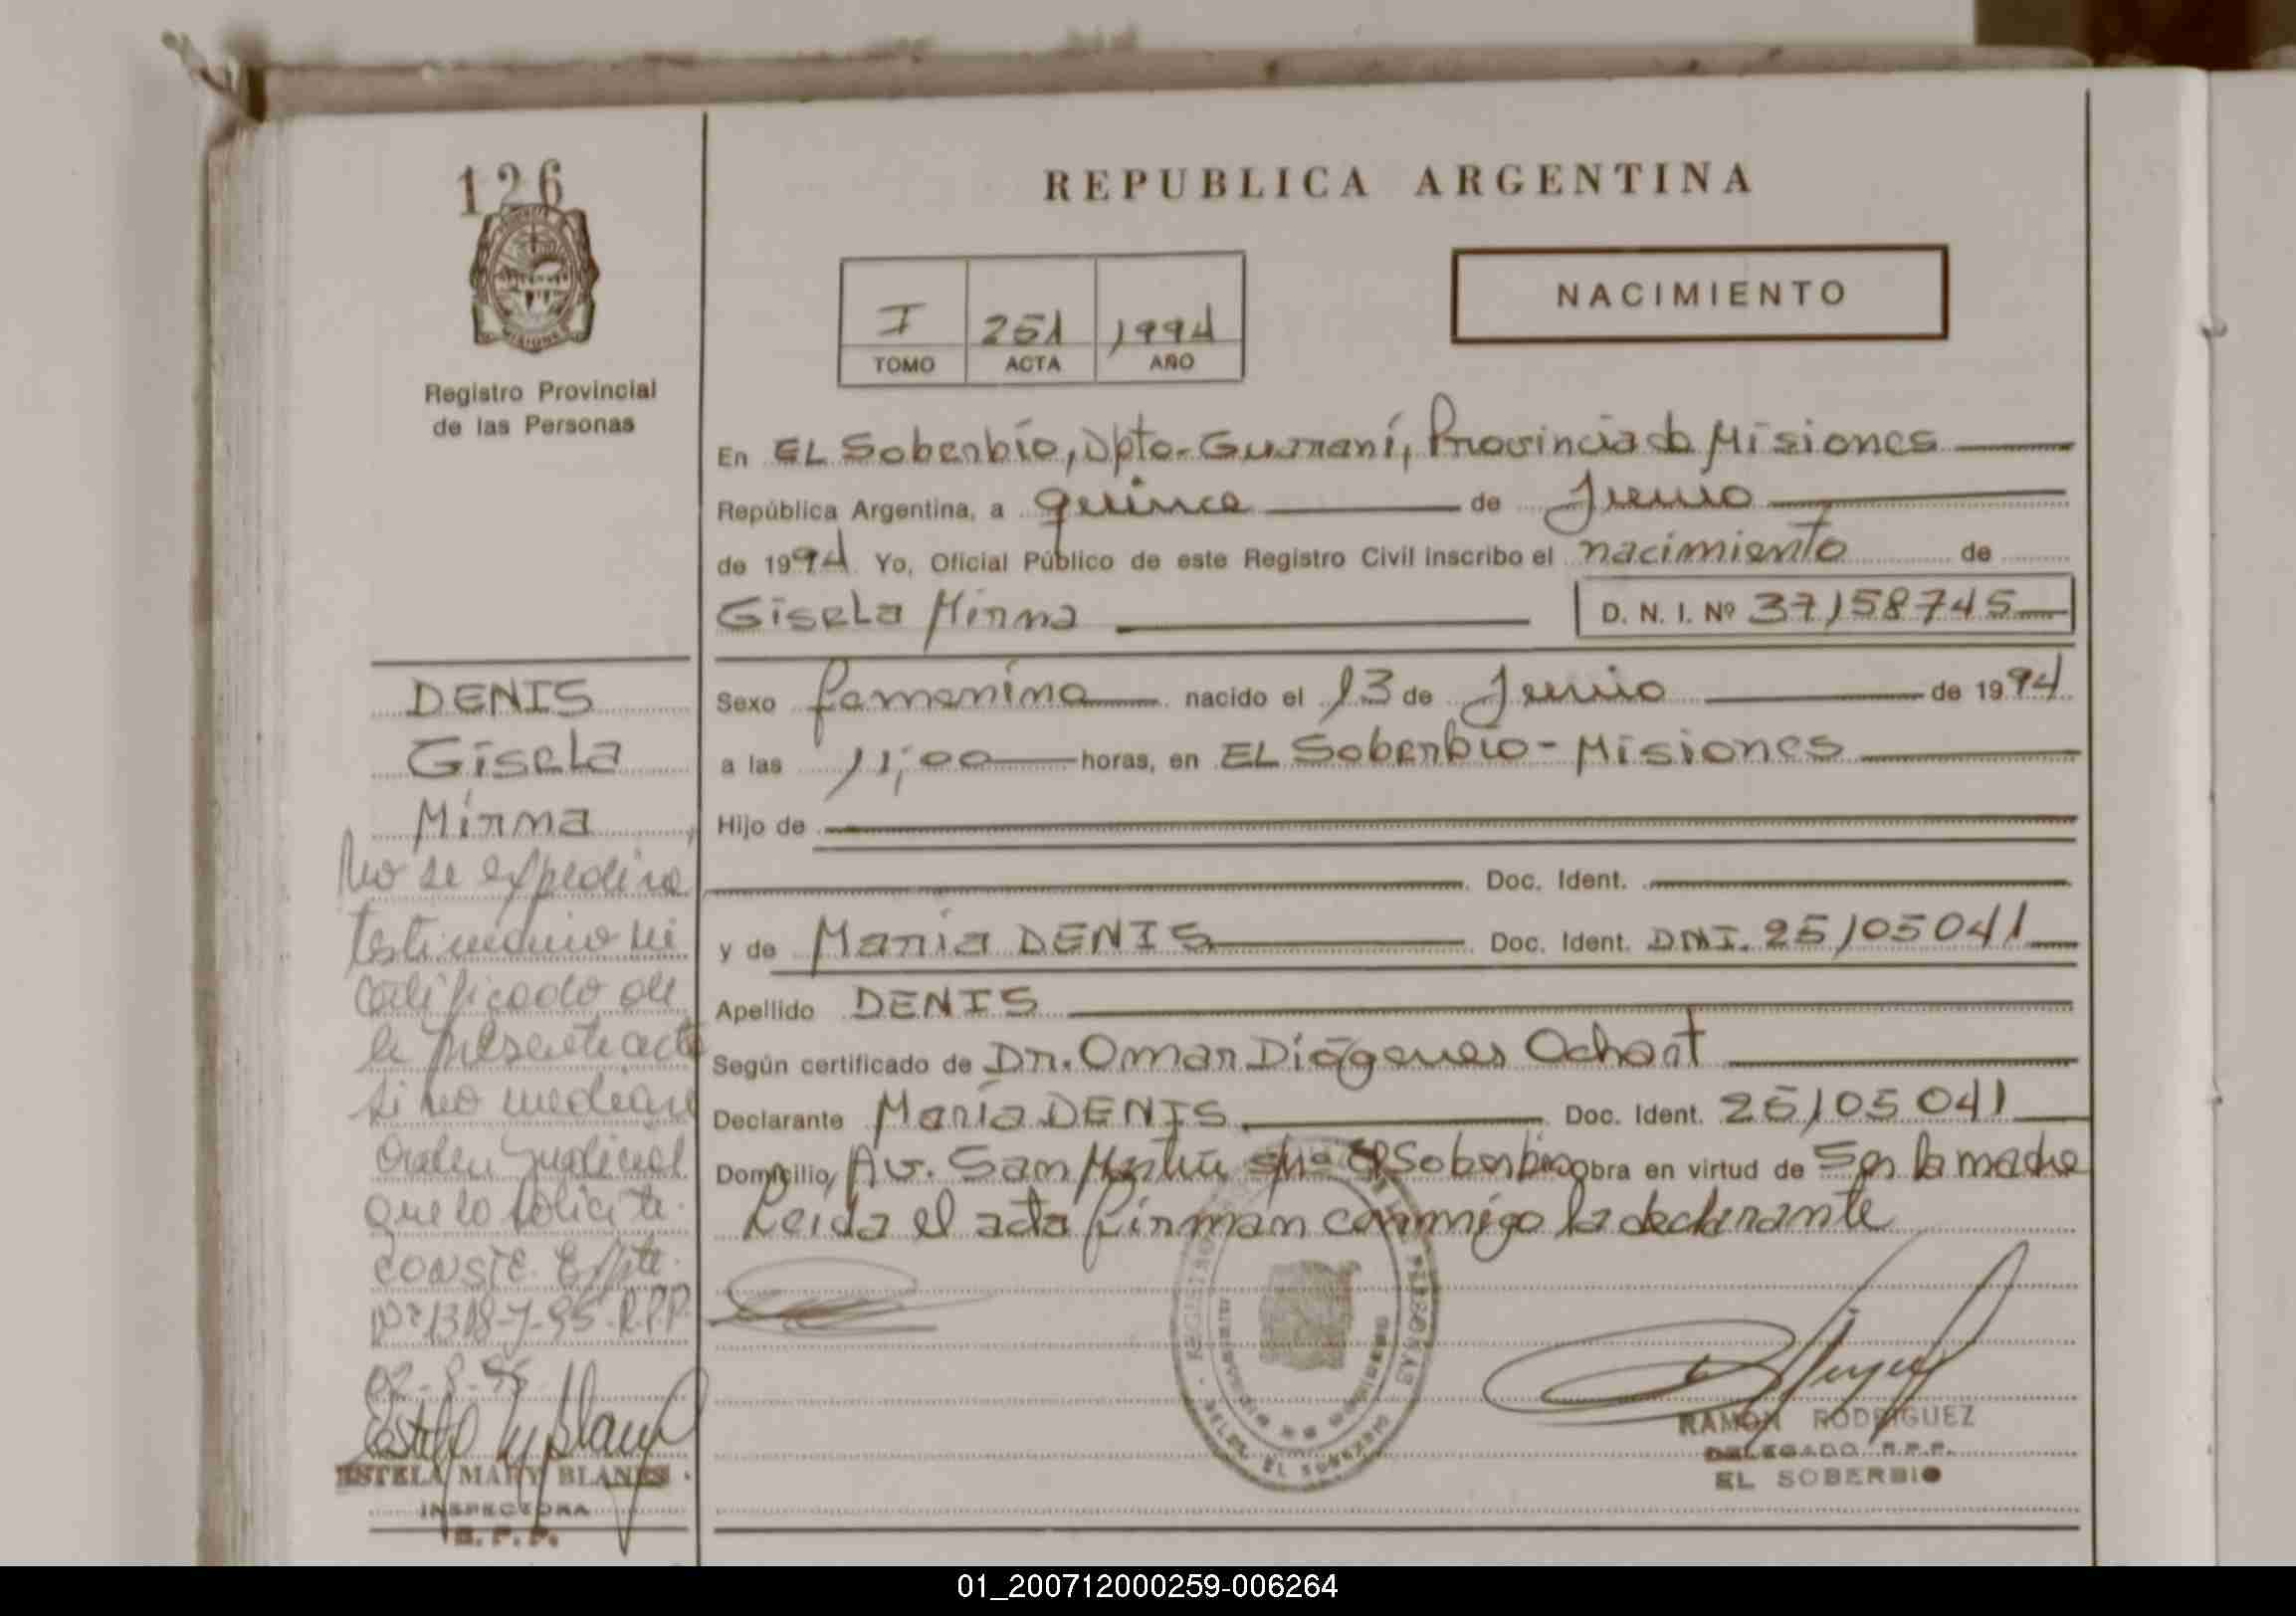 126
Registro Provincial
de las Personas
REPUBLICA ARGENTINA
I 251 1994
TOMO ACTA AÑO
NACIMIENTO
En EL Soberbio, Dpto. Guaraní, Provincia de Misiones
República Argentina, a quince de Junio
de 1994 Yo, Oficial Público de este Registro Civil inscribo el nacimiento de
Gisela Mirna D. N. I. Nº 37158745
Sexo femenino nacido el 13 de Junio de 1994
a las 11,00 horas, en EL Soberbio - Misiones
Hijo de
Doc. Ident.
y de María DENIS Doc. Ident. DNI. 25105041
Apellido DENIS
Según certificado de Dr. Omar Diógenes Ochart
Declarante María DENIS Doc. Ident. 25105041
Domicilio Av. San Martín s/nº El Soberbio obra en virtud de Ser la madre
Leida el acta firman conmigo la declarante
RAMON RODRIGUEZ
DELEGADO R.P.P.
EL SOBERBIO
DENIS
Gisela
Mirna
No se expedira
testimonio ni
certificado de
la presente acta
si no mediare
Orden Judicial
que lo solicite.
CONSTE. Expte.
Nº 1318-7-95-R.P.P.
02-8-95
ESTELA MARY BLANES
INSPECTORA
R. P. P.
01_200712000259-006264